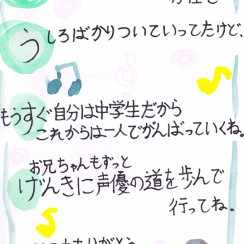 うしろばかりついていってたけど、
もうすぐ自分は中学生だから
これからは一人でがんばっていくね。
お兄ちゃんもずっと
げんきに声優の道を歩んで
行ってね。